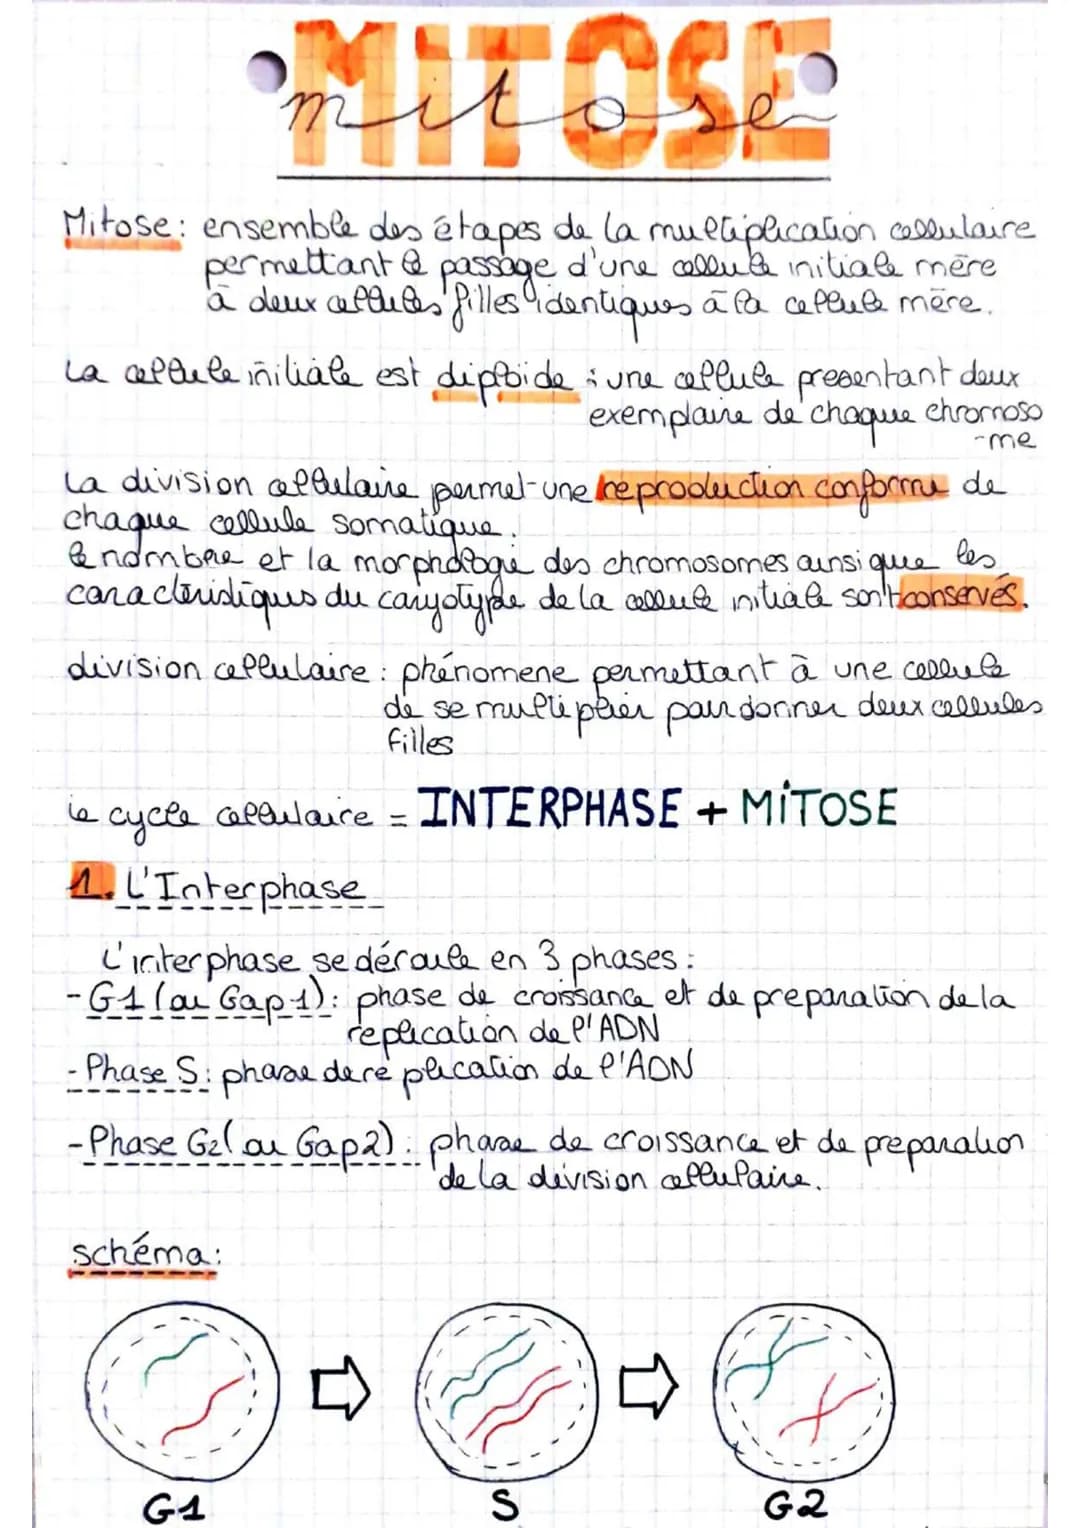 MITOSE
mitose
Mitose : ensemble des étapes de la multiplication cellulaire
permettant le passage d'une cellule initiale mère
à deux cellules filles identiques à la cellule mère.
La cellule initiale est diploide : une cellule presentant deux
exemplaire de chaque chromoso
-me
La division cellulaire permet une reproduction conforme de
chaque cellule somatique.
le nombre et la morphologie des chromosomes ainsi que les
caractéristiques du caryotype de la cellule initiale sont conservés.
division cellulaire : phénomene permettant à une cellule
de se multiplier pour donner deux cellules
filles
le cycle cellulaire = INTERPHASE + MiTOSE
1. L'Interphase
L'interphase se déroule en 3 phases :
- G1 (ou Gap 1) : phase de croissance et de preparation de la
replication de l'ADN
- Phase S : phase de réplication de l'ADN
- Phase G2 (ou Gap2) : phase de croissance et de préparation
de la division cellulaire.
schéma :
G1 S G2